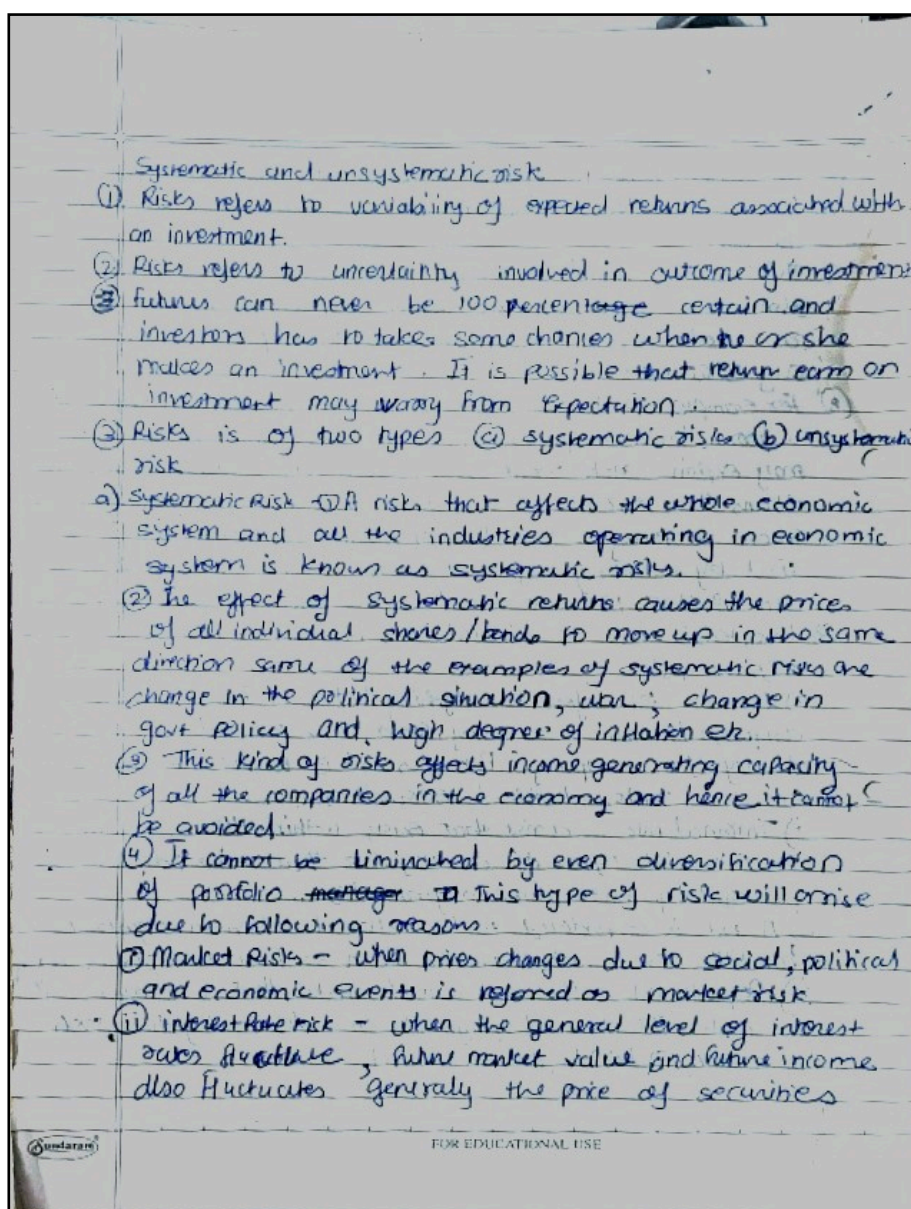 Systematic and unsystematic risk
(1) Risks refers to variability of expected returns associated with
an investment.
(2) Risks refers to uncertainty involved in outcome of investment
futures can never be 100 percentage certain and
investors has to takes some chances when he or she
makes an investment. It is possible that return earn on
investment may vary from expectation.
(3) Risks is of two types (a) systematic risks (b) unsystematic
risk
a) Systematic Risk (1) A risks that affects the whole economic
system and all the industries operating in economic
system is known as systematic risks.
(2) The effect of systematic returns causes the prices
of all individual shares/bonds to move up in the same
direction some of the examples of systematic risks are
change in the political situation, war, change in
govt policy and high degree of inflation etc.
(3) This kind of risks affects income generating capacity
of all the companies in the economy and hence it cannot
be avoided.
(4) It cannot be liminated by even diversification
of portfolio manager This type of risk will arrise
due to following reasons:
(i) Market Risks - when prices changes due to social, political
and economic events is refered as market risk
(ii) interest Rate risk - when the general level of interest
rates fluctuate, future market value and future income
also fluctuates generaly the price of securities
Sundaram
FOR EDUCATIONAL USE